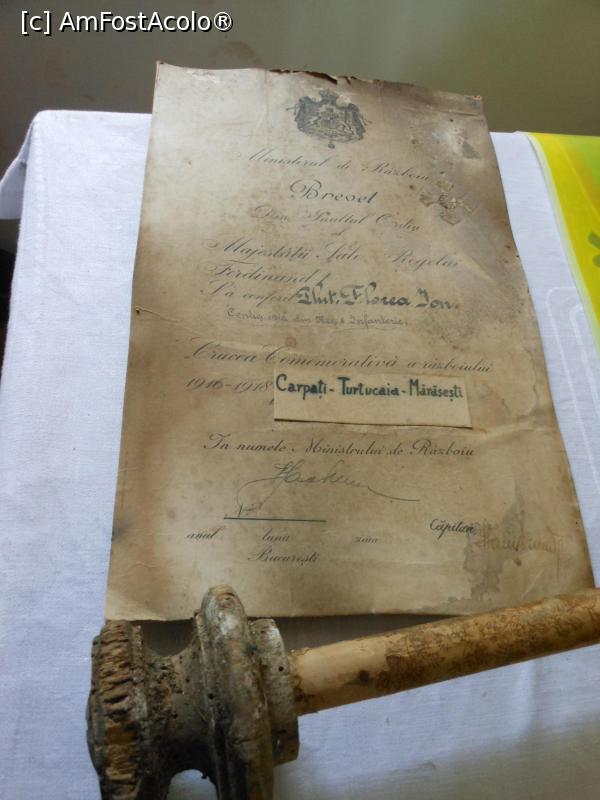 [c] AmFostAcolo®
Ministerul de Războiu
Brevet
Din Inaltul Ordin
al
Majestății Sale Regelui
Ferdinand I
S'a conferit Plut. Florea Ion
din Reg. Infanterie
Crucea Comemorativă a războiului
1916-1918 Carpați - Turtucaia - Mărăsești
In numele Ministrului de Războiu
Căpitan
anul luna ziua
București